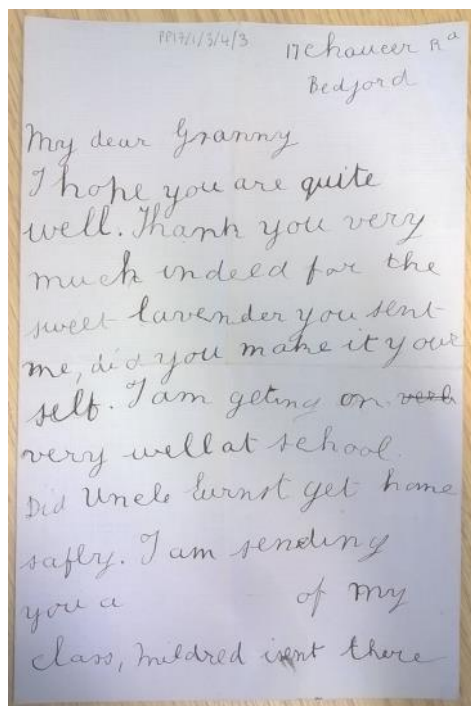 PP17/1/3/4/3
17 Chaucer Rd
Bedford
My dear Granny
I hope you are quite
well. Thank you very
much indeed for the
sweet lavender you sent
me, did you make it your
self. I am geting on
very well at school.
Did Uncle Eurnst get home
safly. I am sending
you a of my
class, Mildred isent there